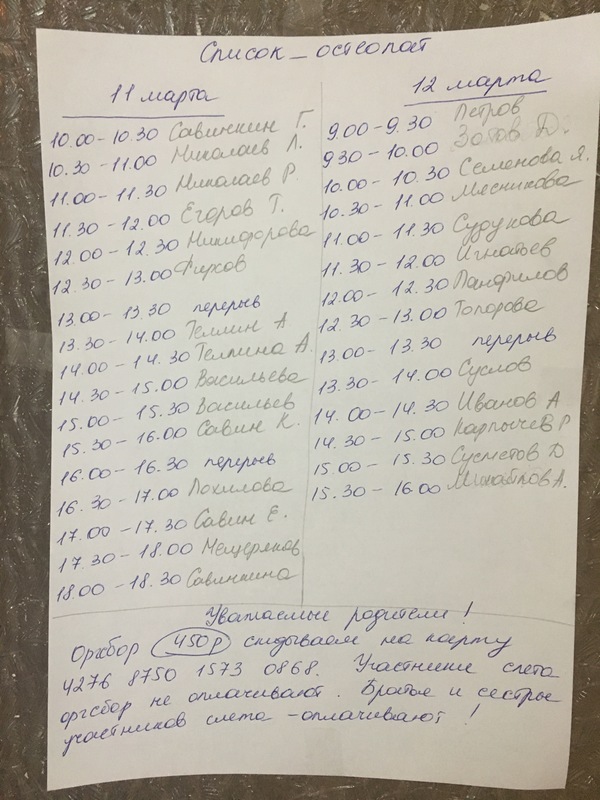 Список_остеопат
11 марта
10.00-10.30 Савинкин Г.
10.30-11.00 Николаев Л.
11.00-11.30 Николаев Р.
11.30-12.00 Егоров Т.
12.00-12.30 Никифорова
12.30-13.00 Фирхов
13.00-13.30 перерыв
13.30-14.00 Темлин А
14.00-14.30 Темлина А.
14.30-15.00 Васильева
15.00-15.30 Васильев
15.30-16.00 Савин К.
16.00-16.30 перерыв
16.30-17.00 Похилова
17.00-17.30 Савин Е.
17.30-18.00 Мещеряков
18.00-18.30 Савинкина
12 марта
9.00-9.30 Петров
9.30-10.00 Зотов Д.
10.00-10.30 Семенова Я.
10.30-11.00 Мясникова
11.00-11.30 Судукова
11.30-12.00 Игнатьев
12.00-12.30 Панфилов
12.30-13.00 Топорова
13.00-13.30 перерыв
13.30-14.00 Суслов
14.00-14.30 Иванов А
14.30-15.00 Карпычев Р
15.00-15.30 Д
15.30-16.00 А.
Уважаемые родители!
Оргсбор 450р скидываем на карту
4276 8750 1573 0868. Участники слета
оргсбор не оплачивают. Братья и сестры
участников слета - оплачивают!